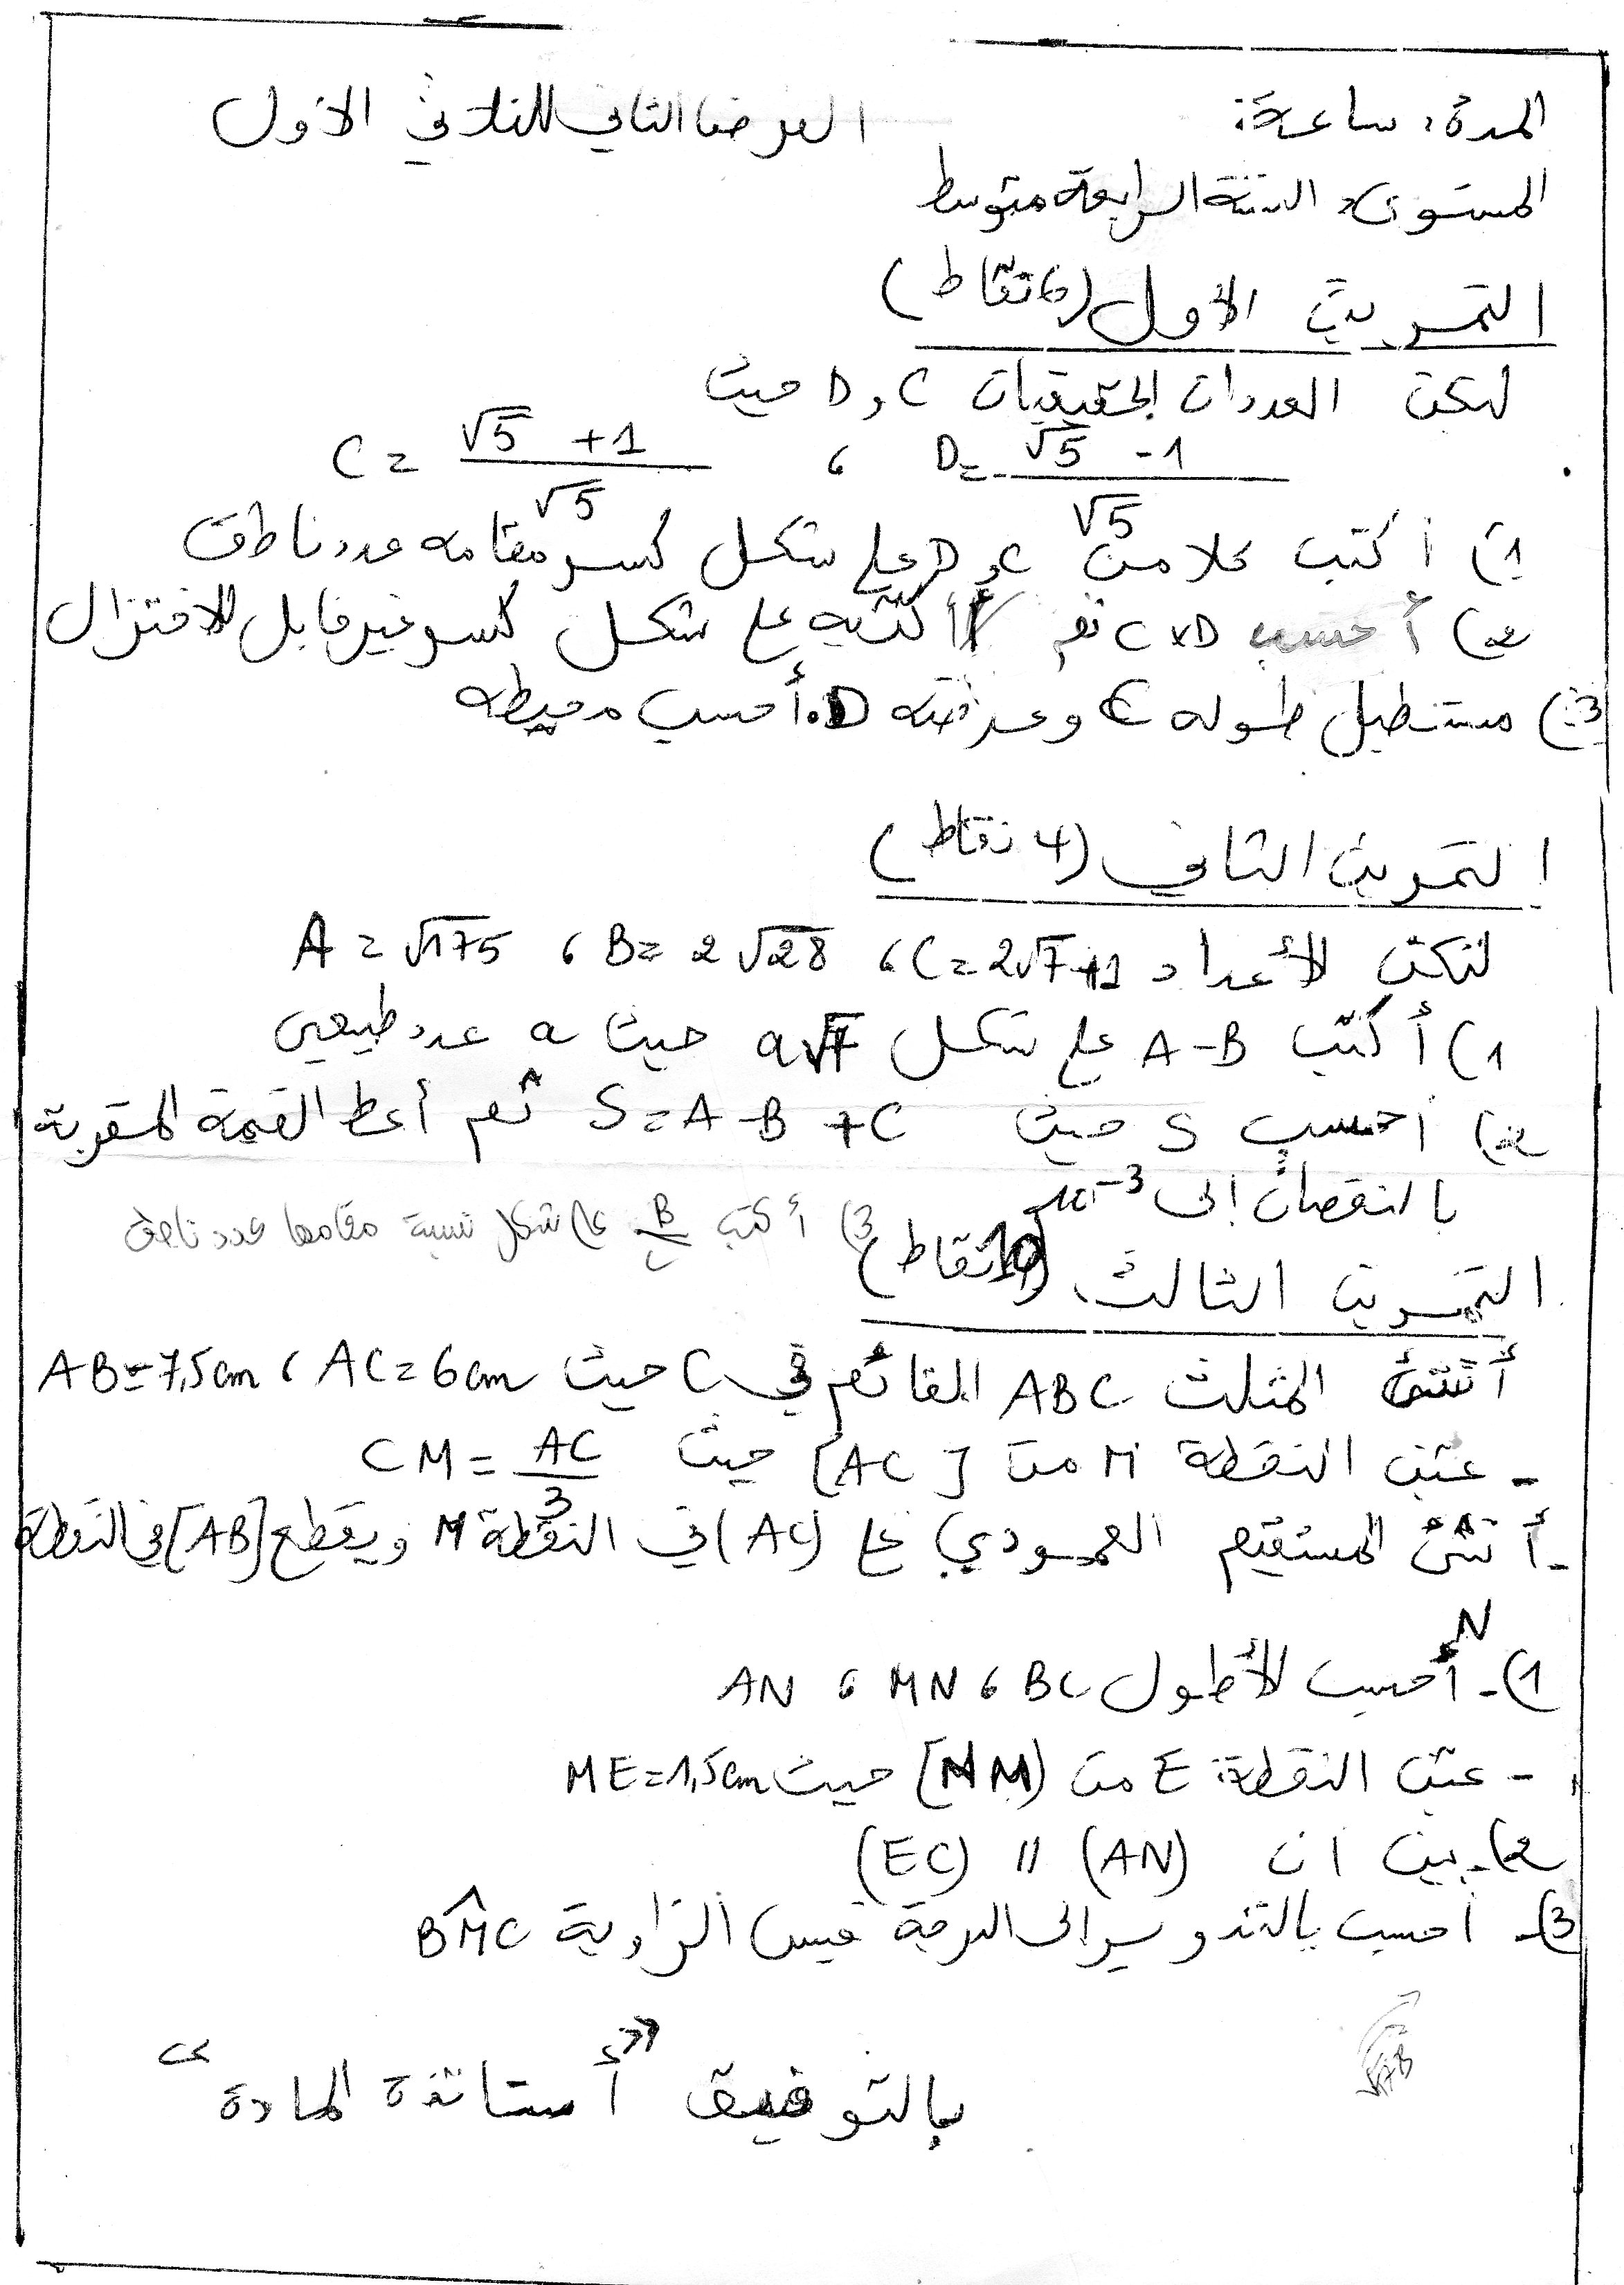 المدة: ساعة: الفرض الثاني للثلاثي الأول
المستوى: السنة الرابعة متوسط
التمرين الأول (6 نقاط)
ليكن العددان الحقيقيان C و D حيث
C = (√5 + 1)/√5 ، D = (√5 - 1)/√5
1) أكتب كلا من C و D على شكل كسر مقامه عدد ناطق
2) أحسب C×D ثم أكتبه على شكل كسر غير قابل للاختزال
3) مستطيل طوله C وعرضه D. أحسب محيطه
التمرين الثاني (4 نقاط)
لتكن الأعداد A = √175 ، B = 2√28 ، C = 2√7+1
1) أكتب A-B على شكل a√7 حيث a عدد طبيعي
2) احسب S حيث S = A - B + C ثم أعط القيمة المقربة
بالنقصان إلى 10⁻³
3) أكتب B/C على شكل نسبة مقامها عدد ناطق
التمرين الثالث (10 نقاط)
أنشئ المثلث ABC القائم في C حيث AB=7,5cm ، AC=6cm
- عين النقطة M من [AC] حيث CM = AC/3
- أنشئ المستقيم العمودي على (AC) في النقطة M ويقطع [AB] في النقطة
N
1)- أحسب الأطول AN ، MN ، BC
- عين النقطة E من [NM) حيث ME=1,5cm
2)- بين ان (EC) // (AN)
3)- احسب بالتدوير الى الدرجة قيس الزاوية BM̂C
بالتوفيق "أستاتذة المادة"